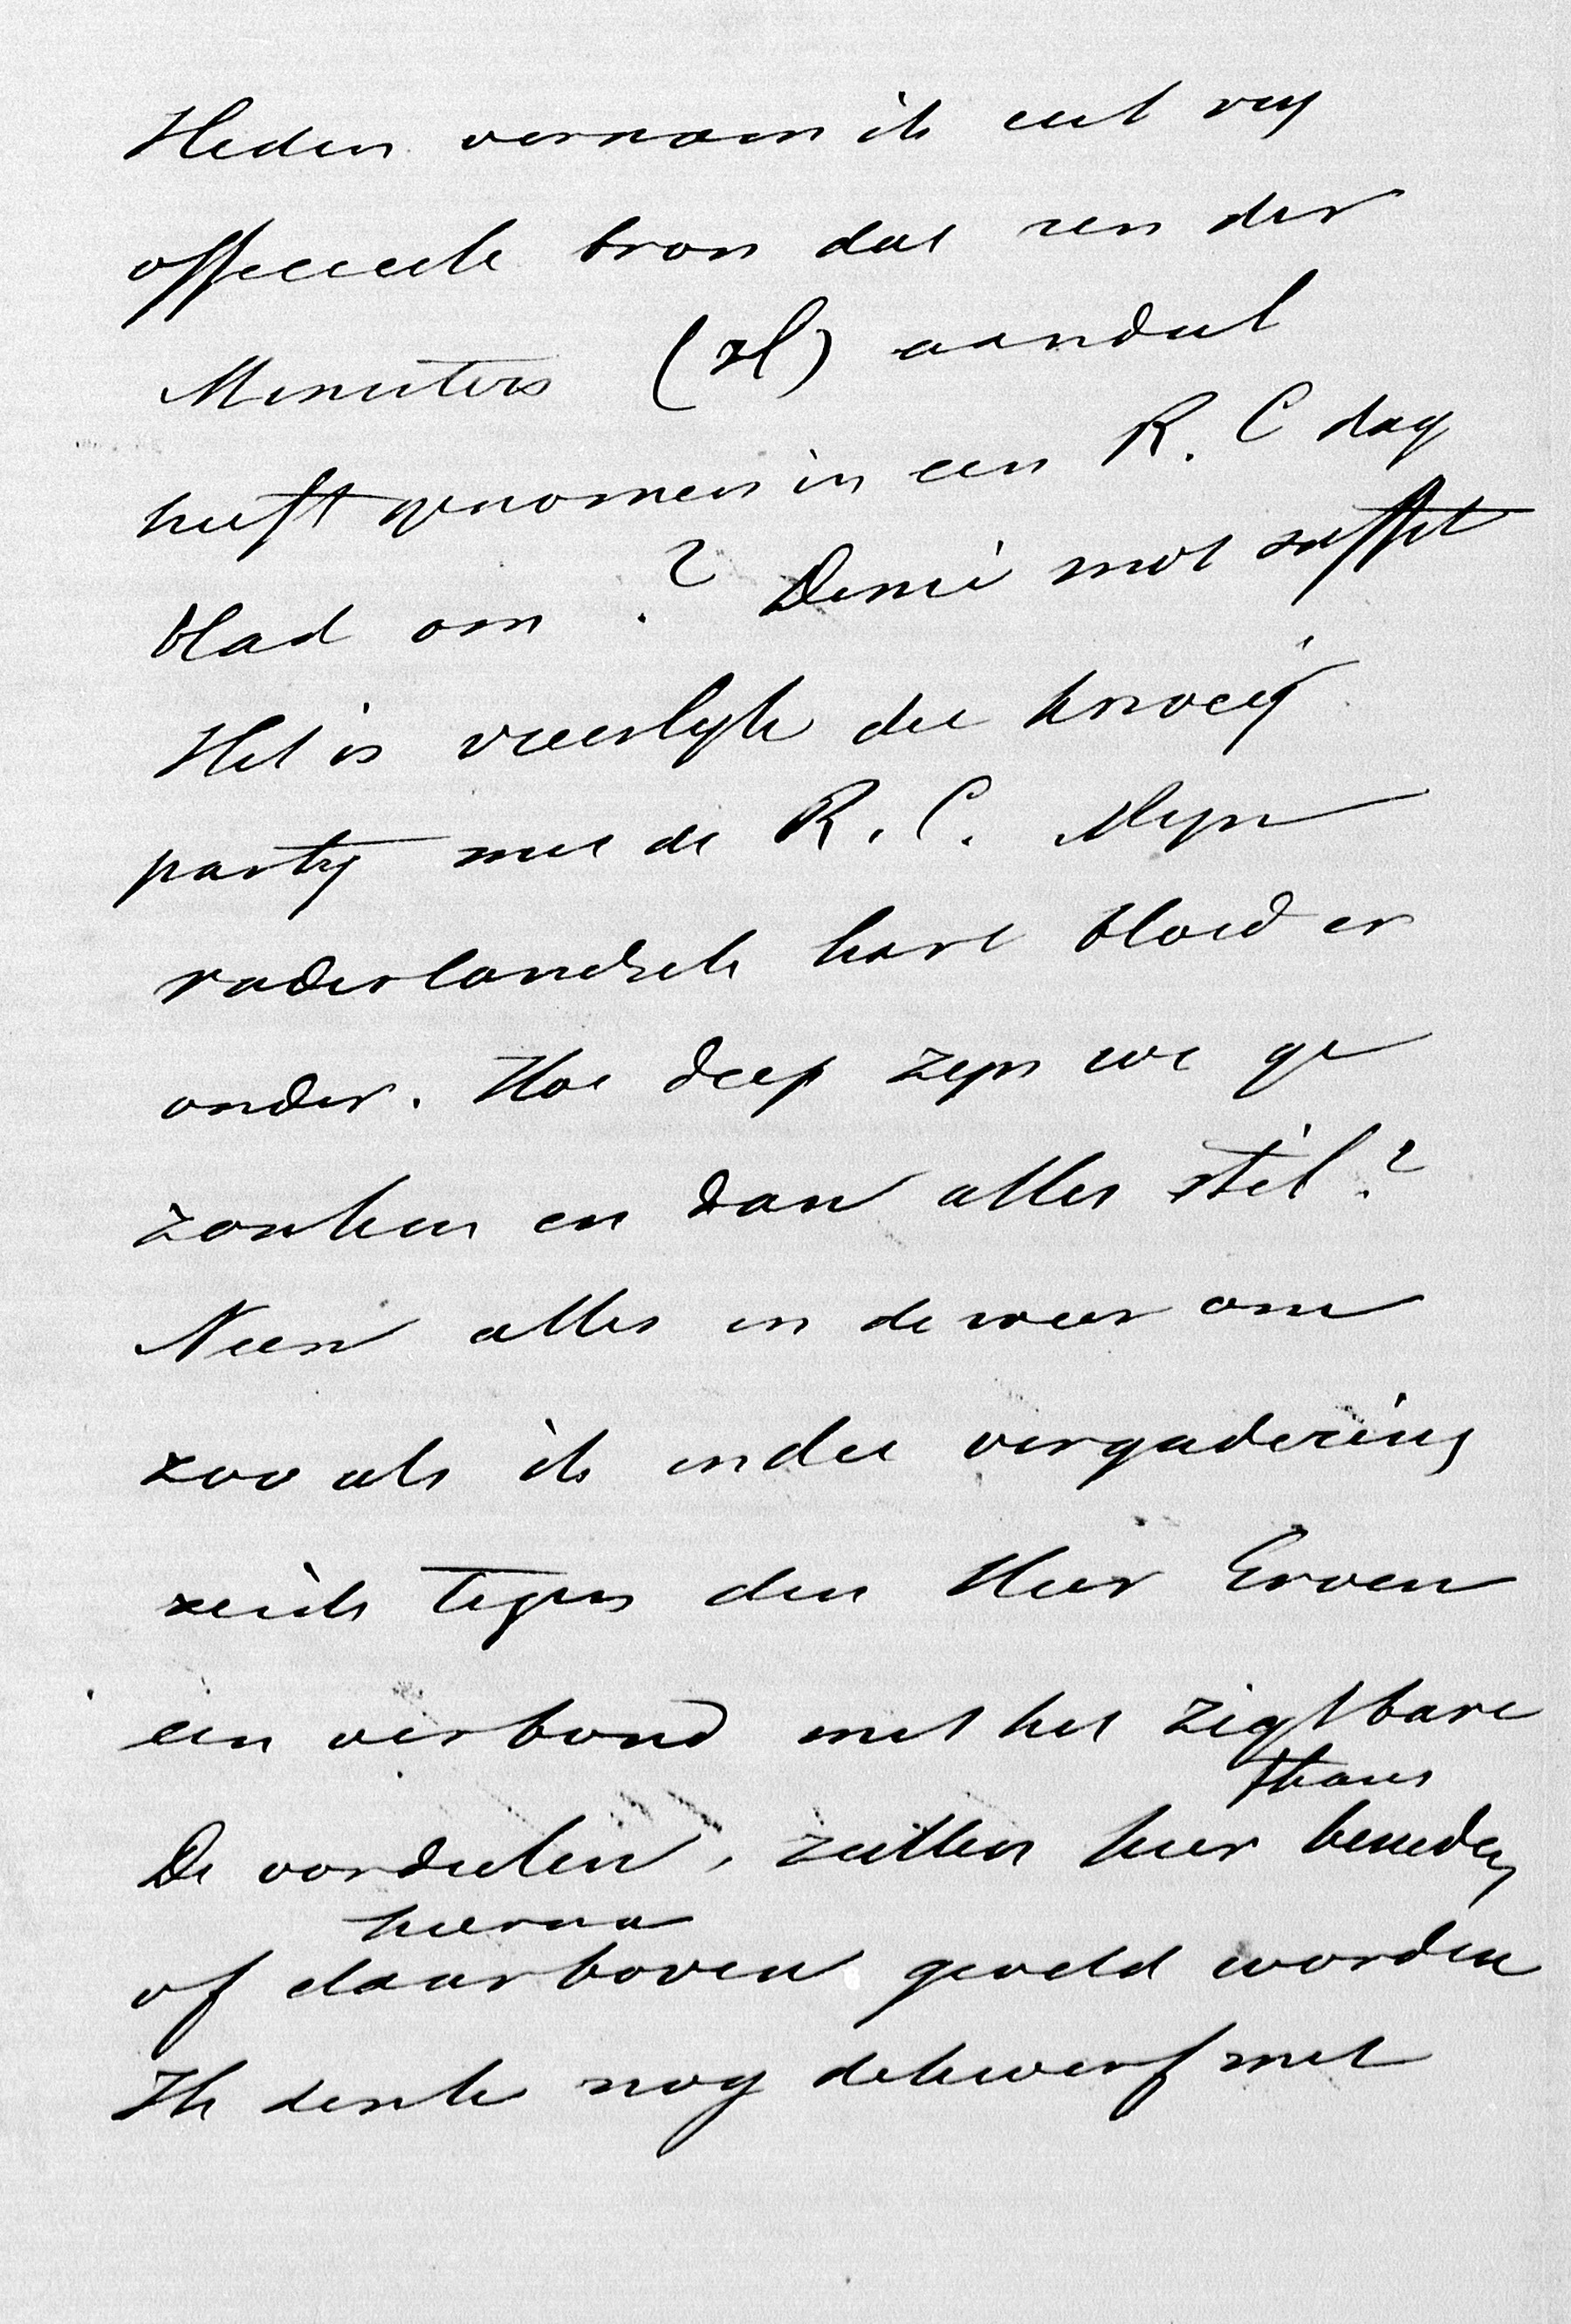 Heden vernam ik uit vry
officieele bron dat een der
Ministers (xl) aandeel
heeft genomen in een R. C dag
blad om . ? Demi mot suffit
Het is vreeslyk die knoeij
party met de R. C. Myn
vaderlandsch hart bloed er
onder. Hoe diep zyn we ge
zonken en dan alles stil?
Neen alles in de weer om
zoo als ik in die vergadering
zeide tegen den Heer Erven
een verbond met het zigtbare
thans
De oordeelen, zullen hier beneden
hierna
of daarboven geveld worden
Ik denk nog dikwerf met